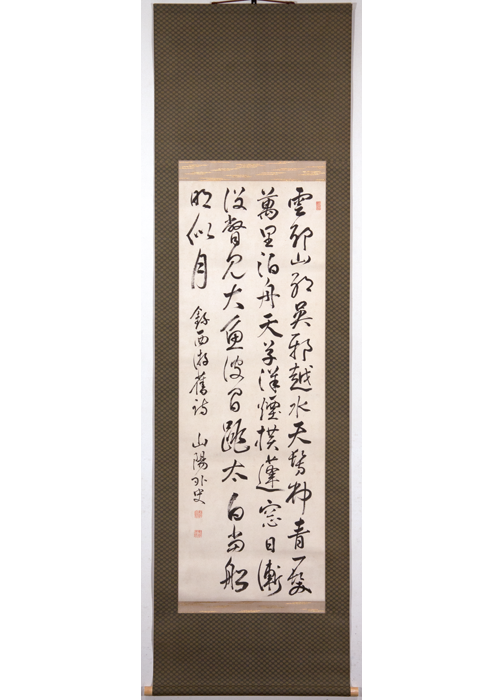 雲耶山耶呉耶越水天髣髴青一髮
萬里泊舟天草洋煙橫蓬窓日漸
没瞥見大魚波間跳太白當船
明似月 錄西游舊詩 山陽外史